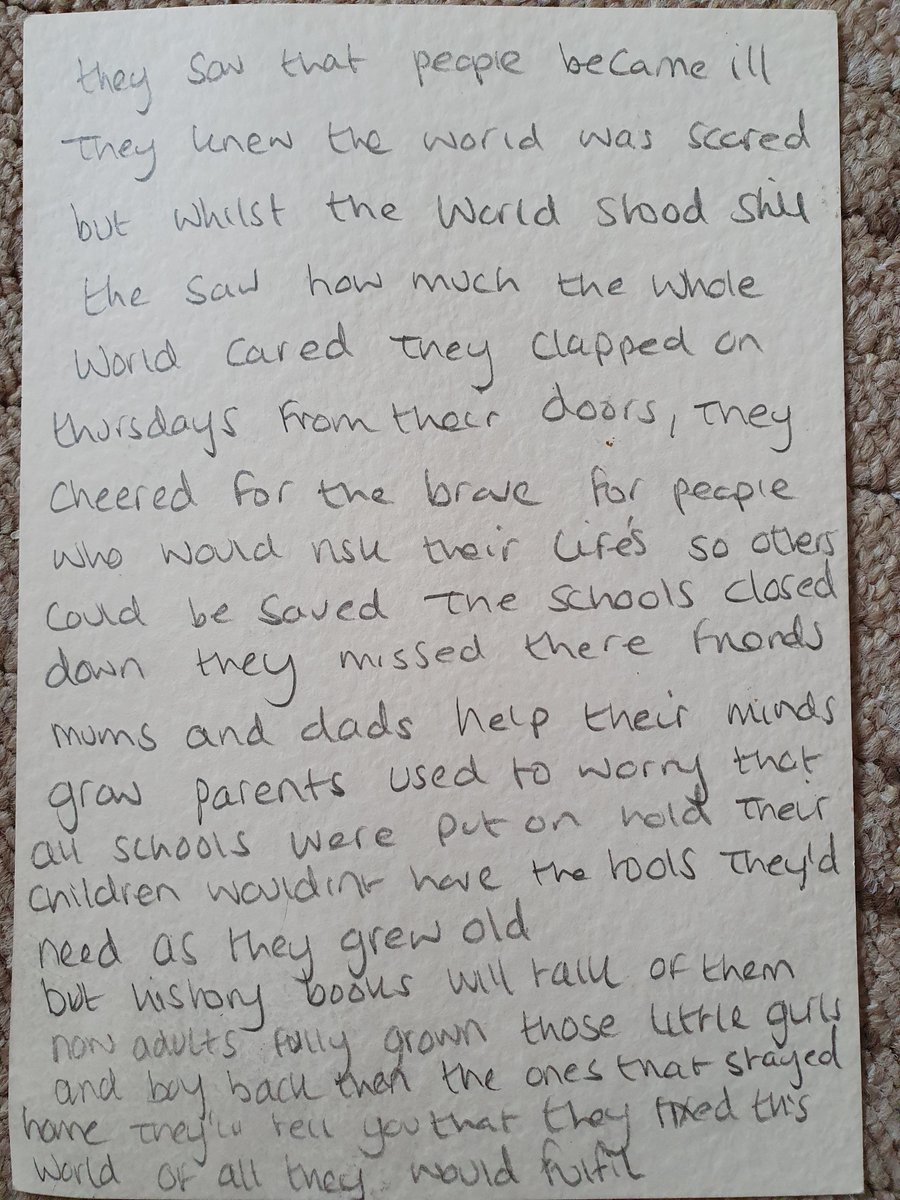 they saw that people became ill
They knew the world was scared
but whilst the World stood still
the saw how much the whole
World cared They clapped on
thursdays from their doors, They
cheered for the brave for people
who would risk their life's so others
could be saved The schools closed
down they missed there friends
mums and dads help their minds
grow parents used to worry that
all schools were put on hold Their
children wouldint have the tools They'd
need as they grew old
but history books will talk of them
now adults fully grown those little gurls
and boy back then the ones that stayed
home They'll tell you that they fixed this
World of all they would fulfil